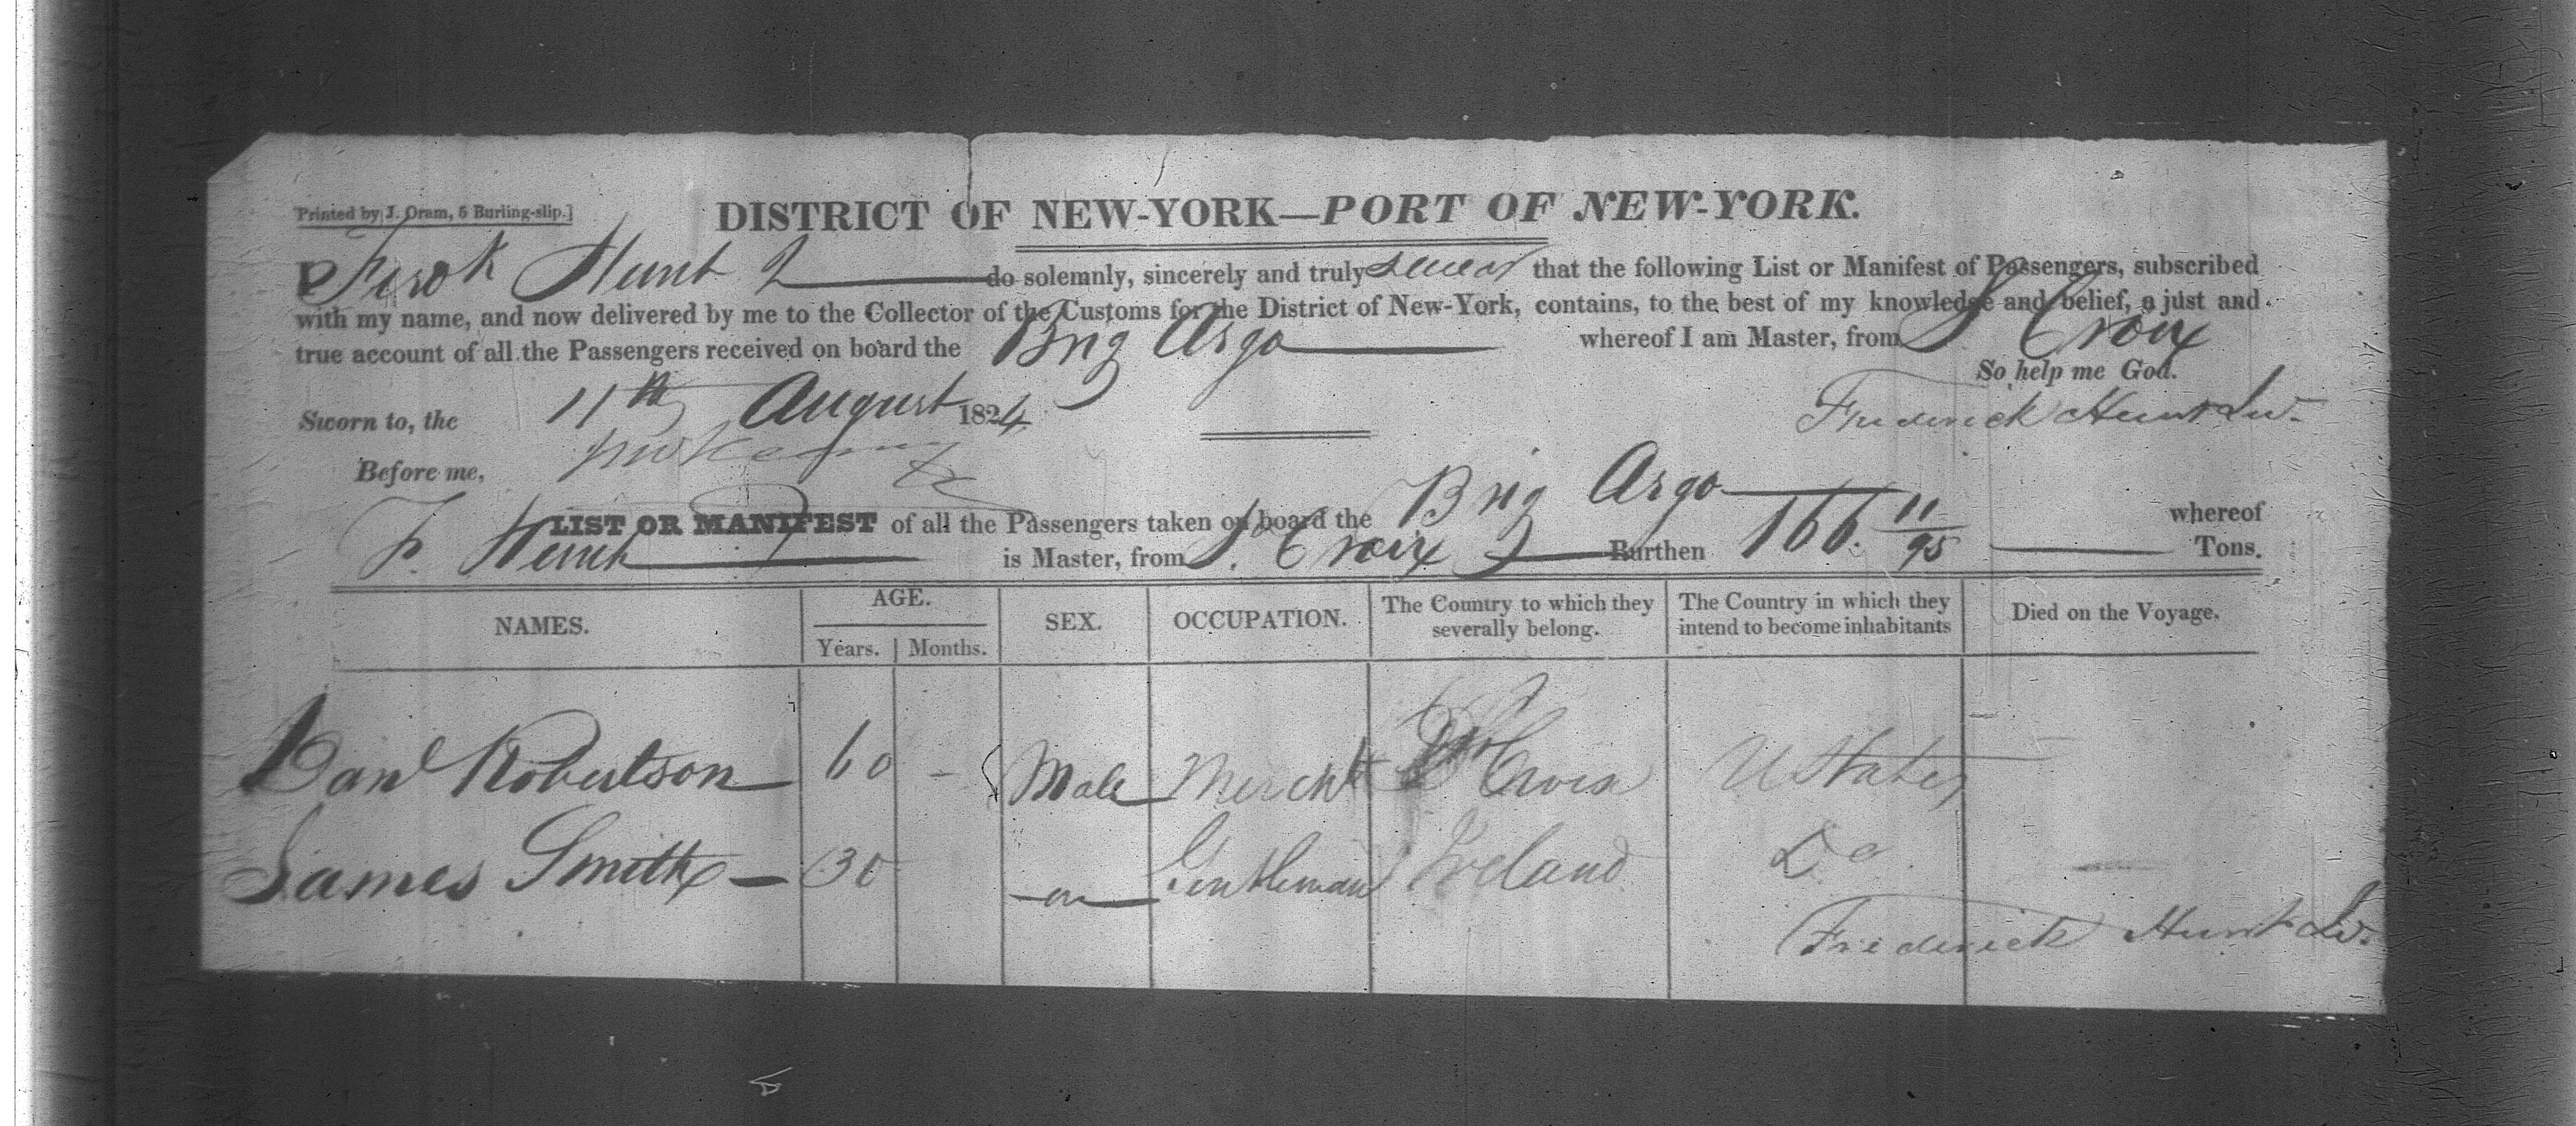 Printed by J. Oram, 5 Burling-slip.]
DISTRICT OF NEW-YORK—PORT OF NEW-YORK.
I Fredk Hunt do solemnly, sincerely and truly swear that the following List or Manifest of Passengers, subscribed
with my name, and now delivered by me to the Collector of the Customs for the District of New-York, contains, to the best of my knowledge and belief, a just and
true account of all the Passengers received on board the Brig Argo whereof I am Master, from St Croix
So help me God.
Sworn to, the 11th August 1824
Frederick Hunt Jur.
Before me,
LIST OR MANIFEST of all the Passengers taken on board the Brig Argo whereof
F. Hunt is Master, from St Croix Burthen 166. 11/95 Tons.
NAMES. AGE. SEX. OCCUPATION. The Country to which they severally belong. The Country in which they intend to become inhabitants Died on the Voyage.
Years. Months.
Danl Robertson 60 - Male Mercht St Croix U States —
James Smith — 30 Gentleman Ireland Do —
Frederick Hunt Jur.